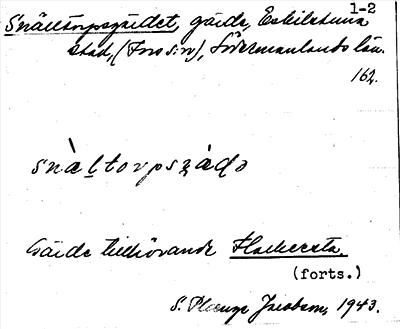 1-2
Snälltorpsgärdet, gärde, Eskilstuna
stad, (Fors sn), Södermanlands län.
162.
snàl̠torpsɀàdə
Gärde tillhörande
(forts.)
S. Jacobson, 1943.